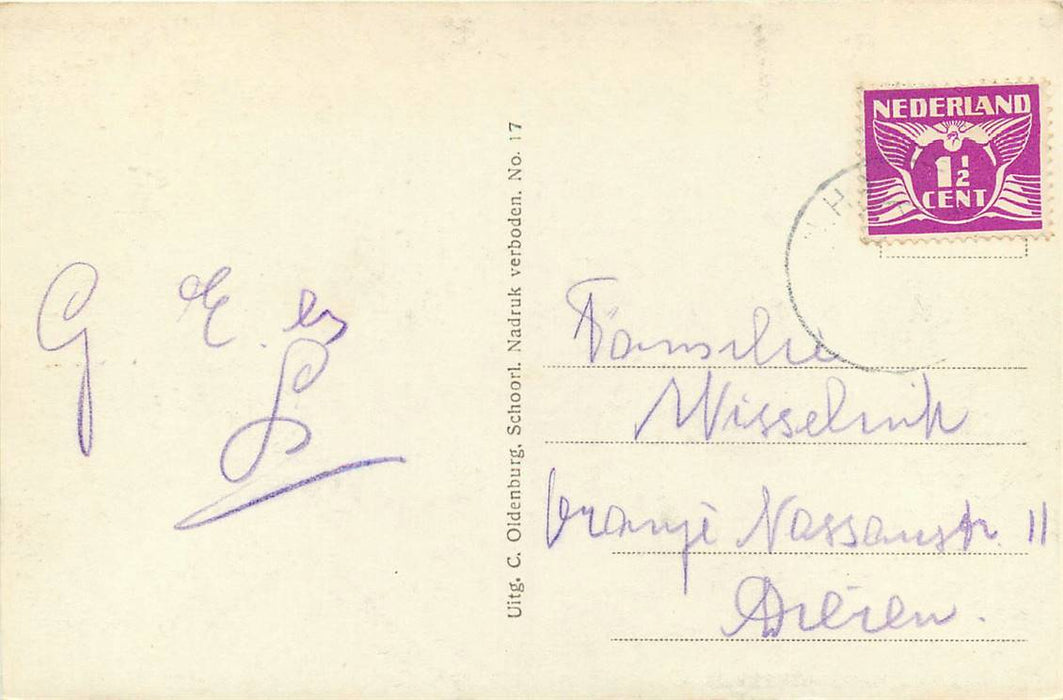 NEDERLAND
1 1/2
CENT
G E. en
S
Uitg. C. Oldenburg. Schoorl. Nadruk verboden. No. 17
Familie
Wisselink
Oranje Nassaustr. 11
Dieren.